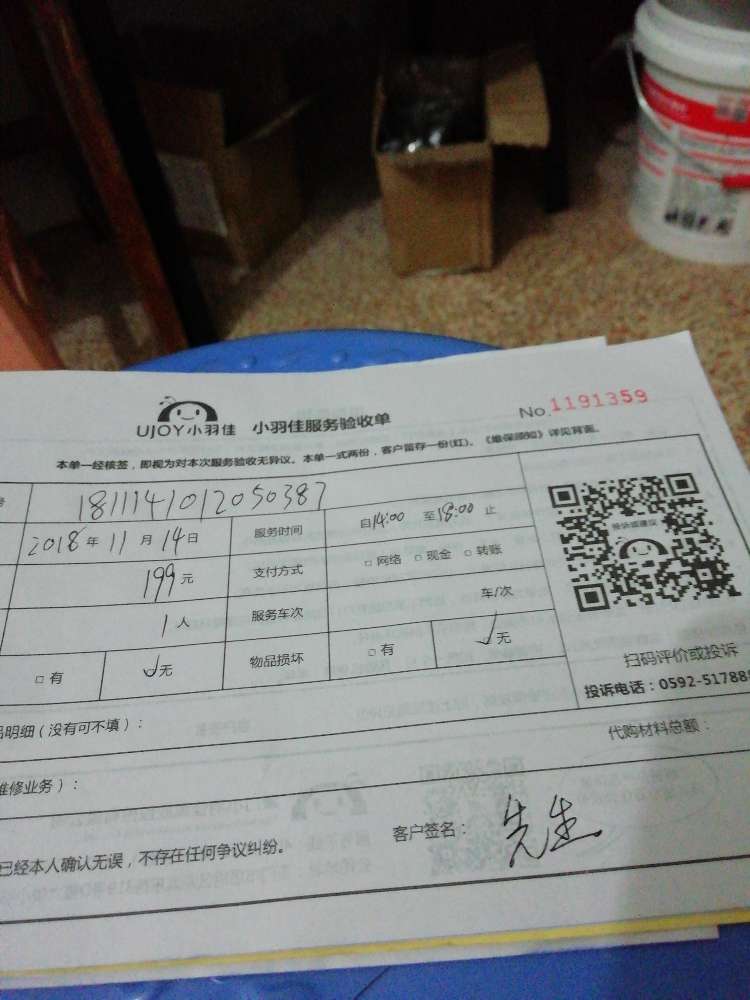 UJOY小羽佳 小羽佳服务验收单 No.1191359
本单一经核签，即视为对本次服务验收无异议。本单一式两份，客户留存一份(红)。《维保须知》详见背面。
号 1811141012050387
2018年11月14日 服务时间 自14:00 至18:00 止
199元 支付方式 □ 网络 □ 现金 □ 转账
1人 服务车次 车/次
□ 有 ✓无 物品损坏 □ 有 ✓无
投诉或建议
扫码评价或投诉
投诉电话：0592-517888
品明细（没有可不填）： 代购材料总额：
维修业务）：
已经本人确认无误，不存在任何争议纠纷。 客户签名： 先生